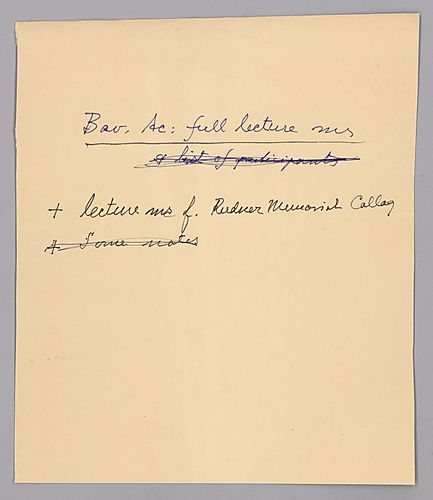 Bav. Ac: full lecture ms
+ list of participants
+ lecture ms f. Rudner Memorial Colloq
+ Some notes